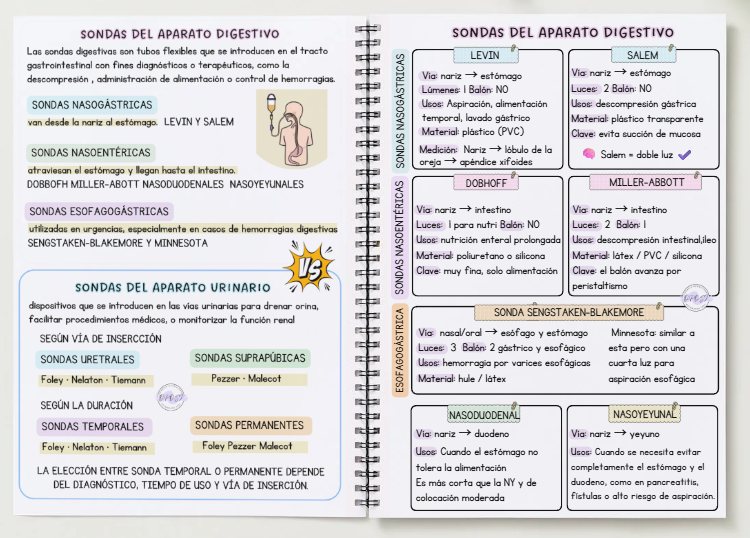 SONDAS DEL APARATO DIGESTIVO
Las sondas digestivas son tubos flexibles que se introducen en el tracto
gastrointestinal con fines diagnósticos o terapéuticos, como la
descompresión , administración de alimentación o control de hemorragias.
SONDAS NASOGÁSTRICAS
van desde la nariz al estómago. LEVIN Y SALEM
SONDAS NASOENTÉRICAS
atraviesan el estómago y llegan hasta el intestino.
DOBBOFH MILLER-ABOTT NASODUODENALES NASOYEYUNALES
SONDAS ESOFAGOGÁSTRICAS
utilizadas en urgencias, especialmente en casos de hemorragias digestivas
SENGSTAKEN-BLAKEMORE Y MINNESOTA
VS
SONDAS DEL APARATO URINARIO
dispositivos que se introducen en las vías urinarias para drenar orina,
facilitar procedimientos médicos, o monitorizar la función renal
SEGÚN VÍA DE INSERCCIÓN
SONDAS URETRALES
Foley · Nelaton · Tiemann
SONDAS SUPRAPÚBICAS
Pezzer · Malecot
SEGÚN LA DURACIÓN
SONDAS TEMPORALES
Foley · Nelaton · Tiemann
SONDAS PERMANENTES
Foley Pezzer Malecot
LA ELECCIÓN ENTRE SONDA TEMPORAL O PERMANENTE DEPENDE
DEL DIAGNÓSTICO, TIEMPO DE USO Y VÍA DE INSERCIÓN.
SONDAS DEL APARATO DIGESTIVO
SONDAS NASOGÁSTRICAS
LEVIN
Vía: nariz → estómago
Lúmenes: 1 Balón: NO
Usos: Aspiración, alimentación
temporal, lavado gástrico
Material: plástico (PVC)
Medición: Nariz → lóbulo de la
oreja → apéndice xifoides
SALEM
Vía: nariz → estómago
Luces: 2 Balón: NO
Usos: descompresión gástrica
Material: plástico transparente
Clave: evita succión de mucosa
Salem = doble luz
SONDAS NASOENTÉRICAS
DOBHOFF
Vía: nariz → intestino
Luces: 1 para nutri Balón: NO
Usos: nutrición enteral prolongada
Material: poliuretano o silicona
Clave: muy fina, solo alimentación
MILLER-ABBOTT
Vía: nariz → intestino
Luces: 2 Balón: 1
Usos: descompresión intestinal,íleo
Material: látex / PVC / silicona
Clave: el balón avanza por
peristaltismo
ESOFAGOGÁSTRICA
SONDA SENGSTAKEN-BLAKEMORE
Vía: nasal/oral → esófago y estómago
Luces: 3 Balón: 2 gástrico y esofágico
Usos: hemorragia por varices esofágicas
Material: hule / látex
Minnesota: similar a
esta pero con una
cuarta luz para
aspiración esofágica
NASODUODENAL
Vía: nariz → duodeno
Usos: Cuando el estómago no
tolera la alimentación
Es más corta que la NY y de
colocación moderada
NASOYEYUNAL
Vía: nariz → yeyuno
Usos: Cuando se necesita evitar
completamente el estómago y el
duodeno, como en pancreatitis,
fístulas o alto riesgo de aspiración.